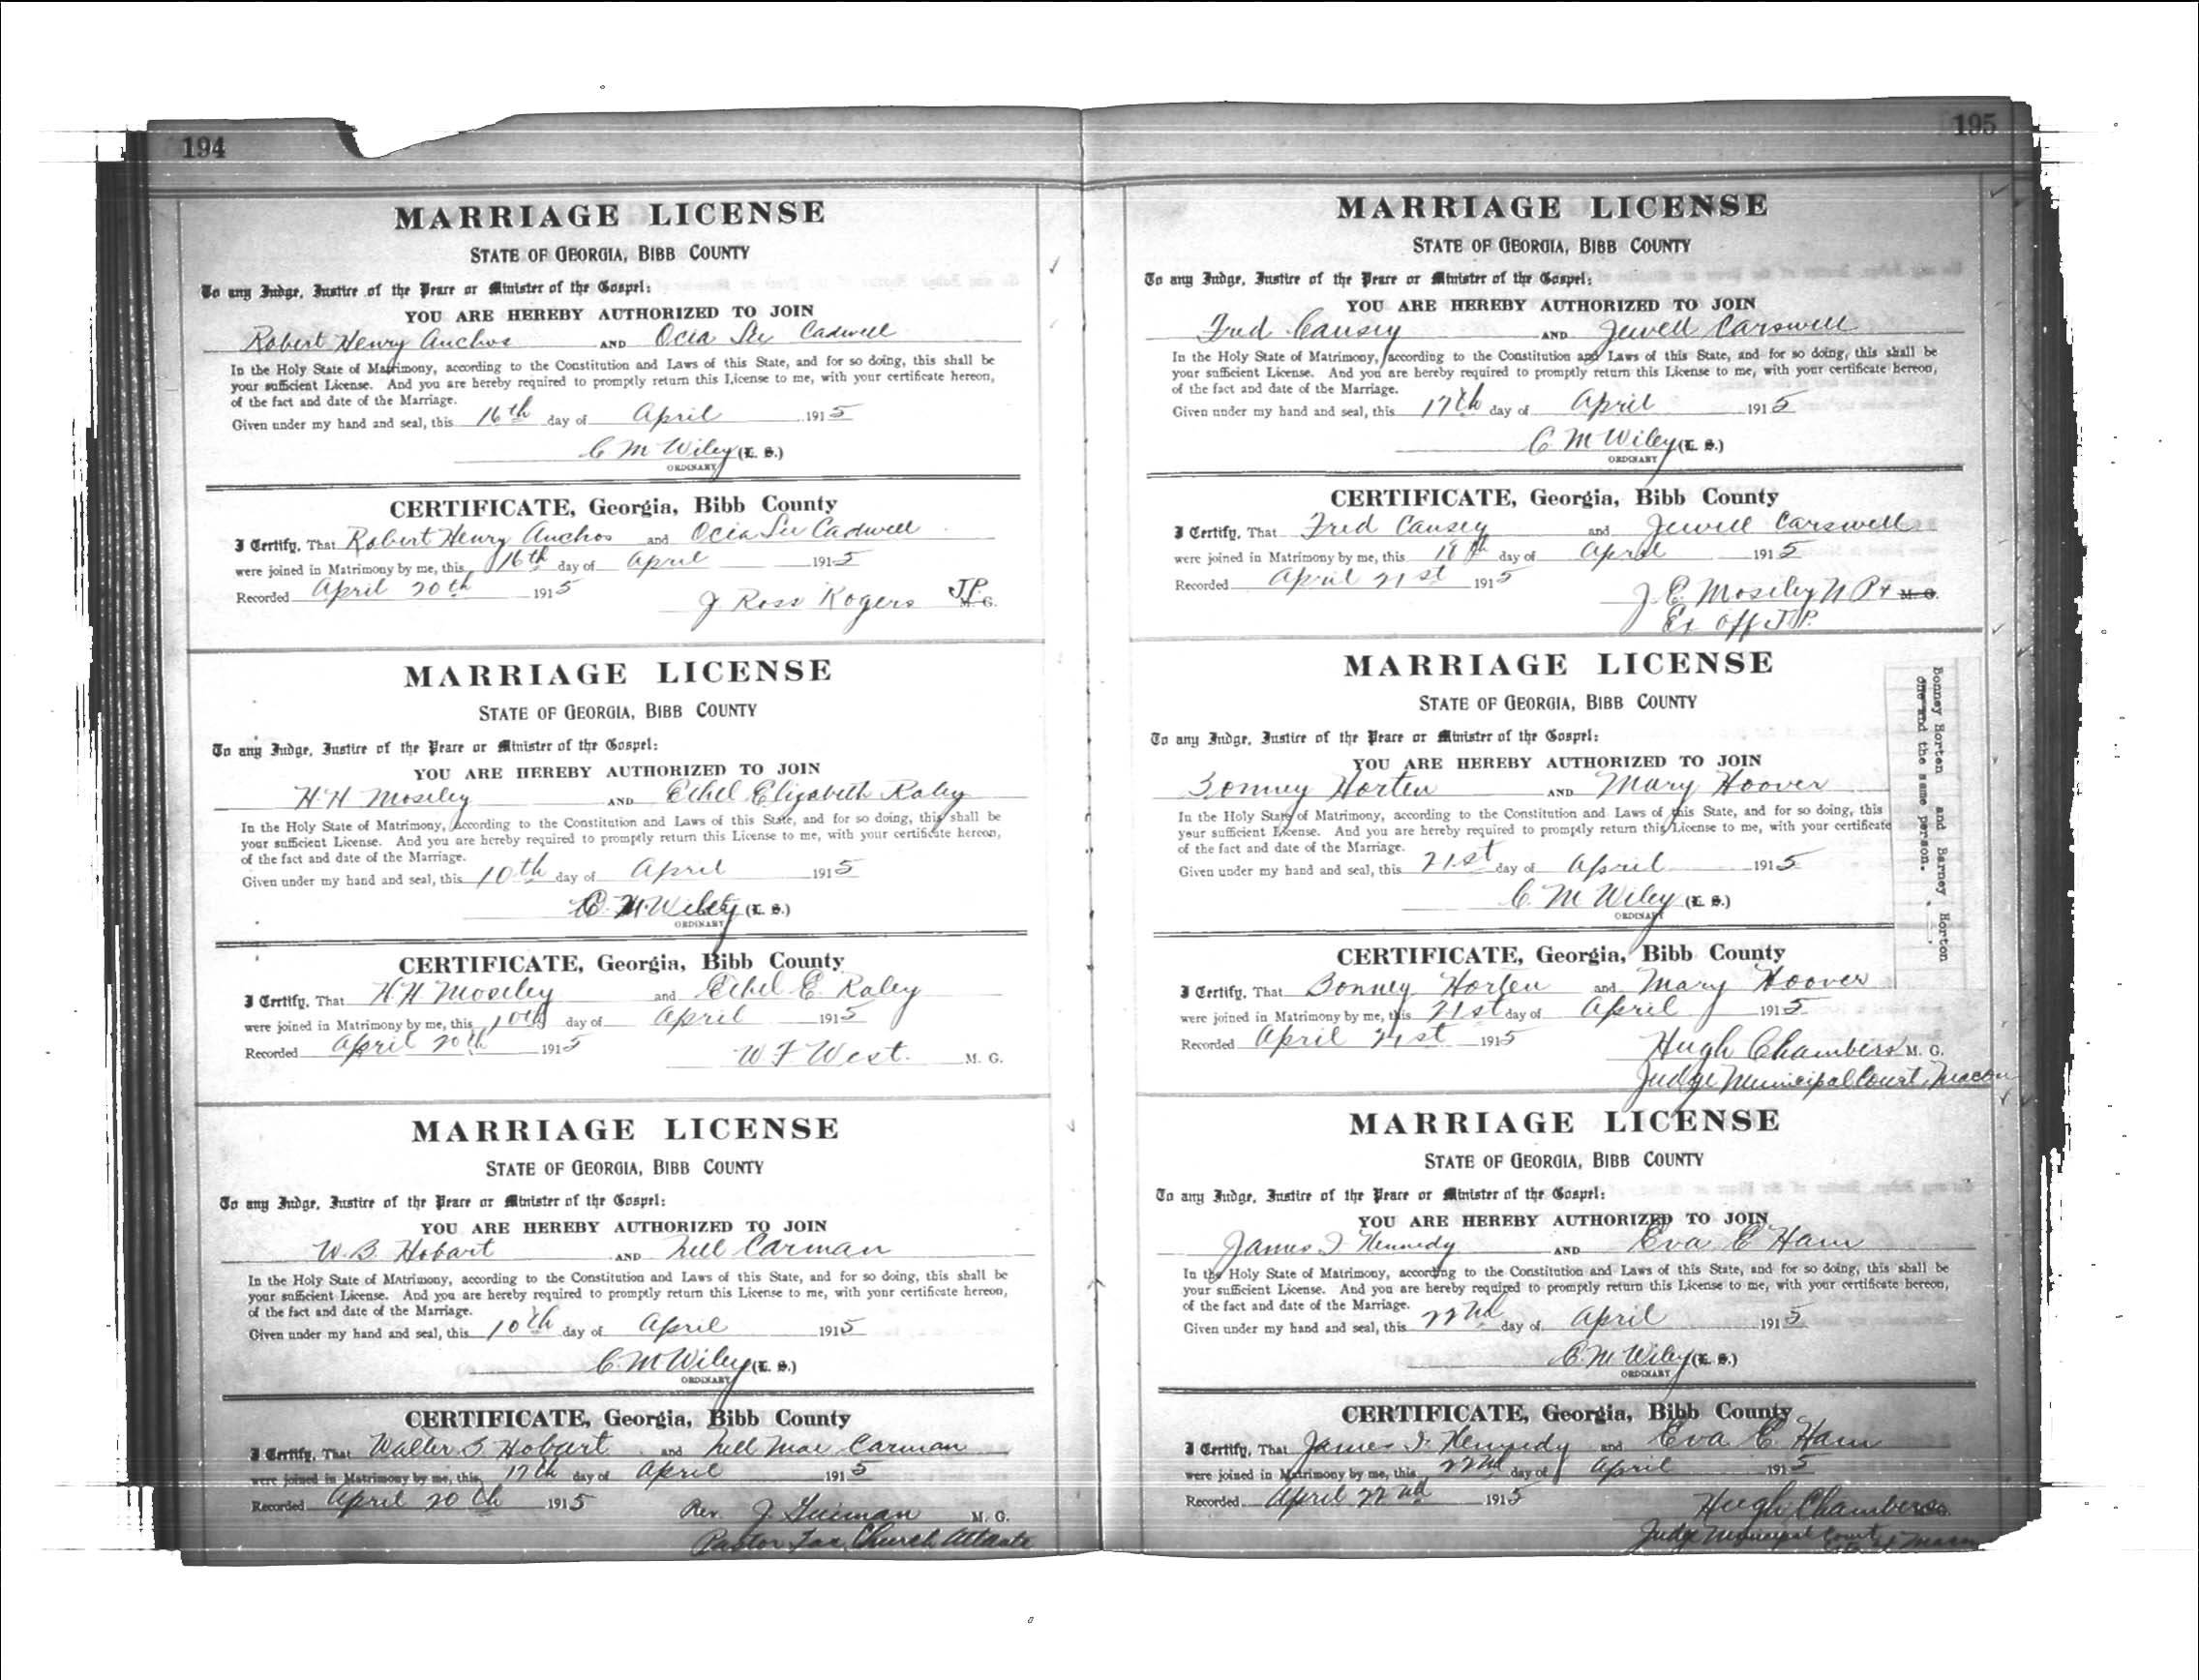 194
MARRIAGE LICENSE
STATE OF GEORGIA, BIBB COUNTY
To any Judge, Justice of the Peace or Minister of the Gospel:
YOU ARE HEREBY AUTHORIZED TO JOIN
Robert Henry Anchos AND Ocia Lee Cadwell
In the Holy State of Matrimony, according to the Constitution and Laws of this State, and for so doing, this shall be
your sufficient License. And you are hereby required to promptly return this License to me, with your certificate hereon,
of the fact and date of the Marriage.
Given under my hand and seal, this 16th day of April 1915
C M Wiley (L. S.)
ORDINARY
CERTIFICATE, Georgia, Bibb County
I Certify, That Robert Henry Anchos and Ocia Lee Cadwell
were joined in Matrimony by me, this 16th day of April 1915
Recorded April 20th 1915
J Ross Rogers J.P. M. G.
MARRIAGE LICENSE
STATE OF GEORGIA, BIBB COUNTY
To any Judge, Justice of the Peace or Minister of the Gospel:
YOU ARE HEREBY AUTHORIZED TO JOIN
H H Moseley AND Ethel Elizabeth Raley
In the Holy State of Matrimony, according to the Constitution and Laws of this State, and for so doing, this shall be
your sufficient License. And you are hereby required to promptly return this License to me, with your certificate hereon,
of the fact and date of the Marriage.
Given under my hand and seal, this 10th day of April 1915
C. M. Wiley (L. S.)
ORDINARY
CERTIFICATE, Georgia, Bibb County
I Certify, That H H Moseley and Ethel E. Raley
were joined in Matrimony by me, this 10th day of April 1915
Recorded April 20th 1915
W F West. M. G.
MARRIAGE LICENSE
STATE OF GEORGIA, BIBB COUNTY
To any Judge, Justice of the Peace or Minister of the Gospel:
YOU ARE HEREBY AUTHORIZED TO JOIN
W. B. Hobart AND Nell Carman
In the Holy State of Matrimony, according to the Constitution and Laws of this State, and for so doing, this shall be
your sufficient License. And you are hereby required to promptly return this License to me, with your certificate hereon,
of the fact and date of the Marriage.
Given under my hand and seal, this 10th day of April 1915
C. M Wiley (L. S.)
ORDINARY
CERTIFICATE, Georgia, Bibb County
I Certify, That Walter B. Hobart and Nell Mae Carman
were joined in Matrimony by me, this 17th day of April 1915
Recorded April 20th 1915
Rev. J. M. G.
Pastor Church
195
MARRIAGE LICENSE
STATE OF GEORGIA, BIBB COUNTY
To any Judge, Justice of the Peace or Minister of the Gospel:
YOU ARE HEREBY AUTHORIZED TO JOIN
Fred Causey AND Jewell Carswell
In the Holy State of Matrimony, according to the Constitution and Laws of this State, and for so doing, this shall be
your sufficient License. And you are hereby required to promptly return this License to me, with your certificate hereon,
of the fact and date of the Marriage.
Given under my hand and seal, this 17th day of April 1915
C. M Wiley (L. S.)
ORDINARY
CERTIFICATE, Georgia, Bibb County
I Certify, That Fred Causey and Jewell Carswell
were joined in Matrimony by me, this 18th day of April 1915
Recorded April 21st 1915
J. E. Moseley N P & M. G.
Ex off J P.
MARRIAGE LICENSE
STATE OF GEORGIA, BIBB COUNTY
To any Judge, Justice of the Peace or Minister of the Gospel:
YOU ARE HEREBY AUTHORIZED TO JOIN
Bonney Horten AND Mary Hoover
In the Holy State of Matrimony, according to the Constitution and Laws of this State, and for so doing, this
your sufficient License. And you are hereby required to promptly return this License to me, with your certificate
of the fact and date of the Marriage.
Given under my hand and seal, this 21st day of April 1915
C. M Wiley (L. S.)
ORDINARY
CERTIFICATE, Georgia, Bibb County
I Certify, That Bonney Horten and Mary Hoover
were joined in Matrimony by me, this 21st day of April 1915
Recorded April 21st 1915
Hugh Chambers M. G.
Judge Municipal Court, Macon
Bonney Horten and Barney Horton
one and the same person.
MARRIAGE LICENSE
STATE OF GEORGIA, BIBB COUNTY
To any Judge, Justice of the Peace or Minister of the Gospel:
YOU ARE HEREBY AUTHORIZED TO JOIN
James I Kennedy AND Eva E Ham
In the Holy State of Matrimony, according to the Constitution and Laws of this State, and for so doing, this shall be
your sufficient License. And you are hereby required to promptly return this License to me, with your certificate hereon,
of the fact and date of the Marriage.
Given under my hand and seal, this 22nd day of April 1915
C. M. Wiley (L. S.)
ORDINARY
CERTIFICATE, Georgia, Bibb County
I Certify, That James I. Kennedy and Eva E. Ham
were joined in Matrimony by me, this 22nd day of April 1915
Recorded April 22nd 1915
Hugh Chambers
Judge Municipal Court